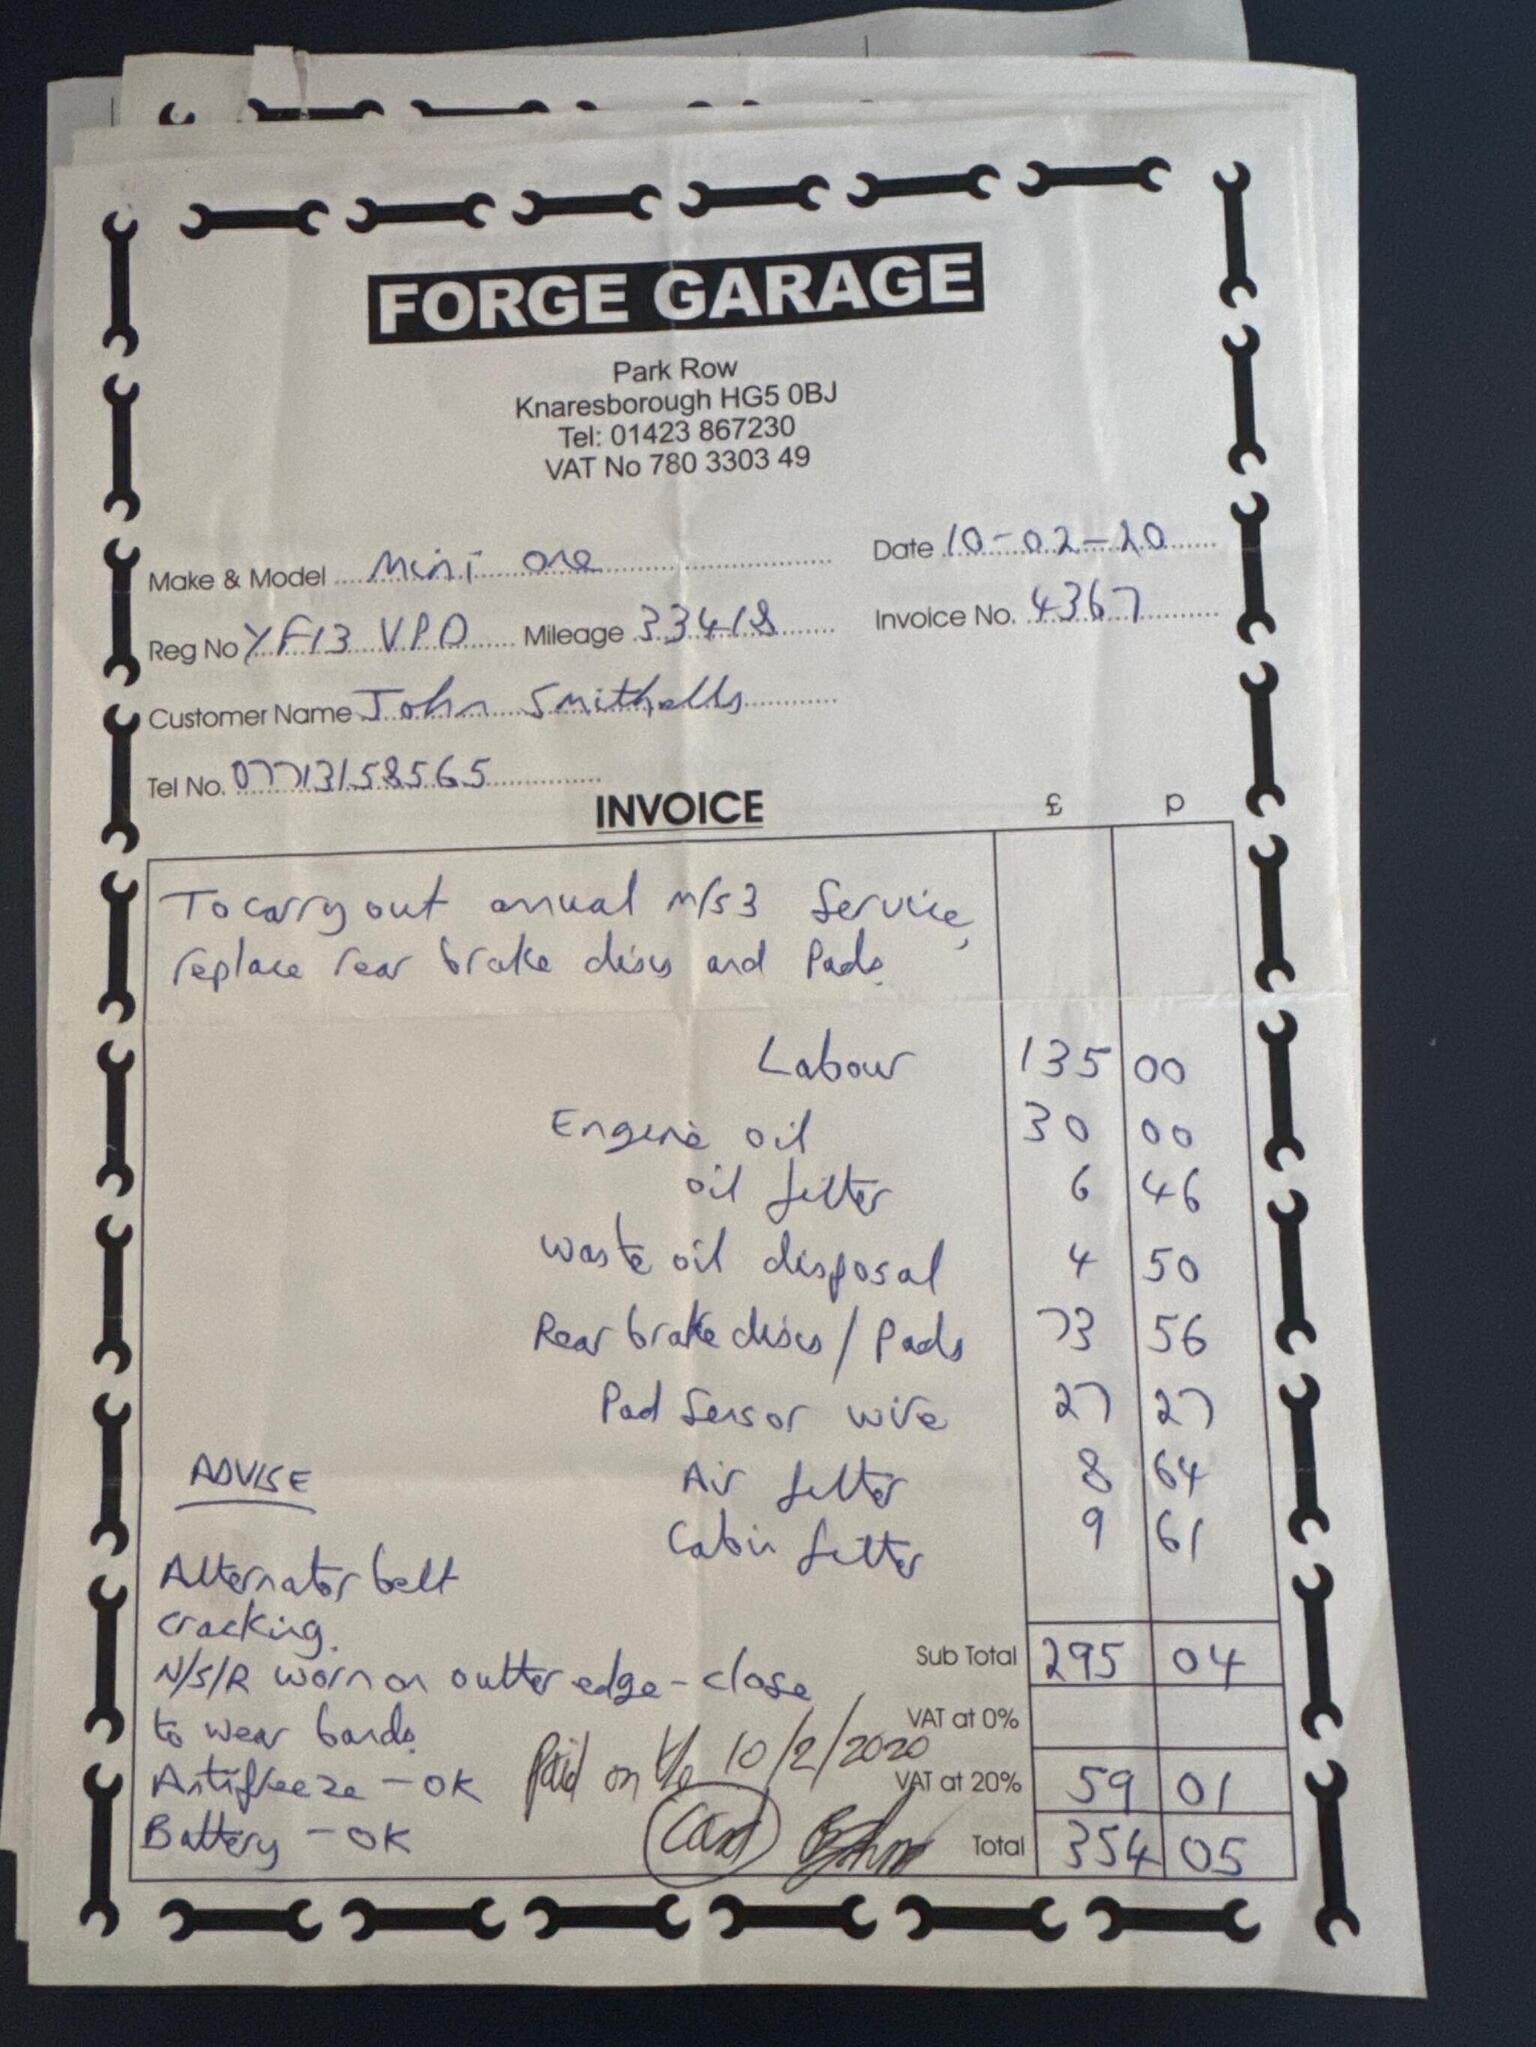 FORGE GARAGE
Park Row
Knaresborough HG5 0BJ
Tel: 01423 867230
VAT No 780 3303 49
Make & Model Mini One
Date 10-02-20
Reg No YF13 VPD Mileage 33418
Invoice No. 4367
Customer Name John Smithells
Tel No. 07713158565
INVOICE
£ p
To carry out annual M/S3 Service,
replace rear brake discs and Pads.
Labour 135 00
Engine oil 30 00
oil filter 6 46
Waste oil disposal 4 50
Rear brake discs / Pads 73 56
Pad Sensor wire 27 27
Air filter 8 64
Cabin filter 9 61
ADVISE
Alternator belt
cracking.
N/S/R worn on outter edge - close
to wear bands.
Antifreeze - OK
Battery - OK
Paid on the 10/2/2020
Card
Sub Total 295 04
VAT at 0%
VAT at 20% 59 01
Total 354 05